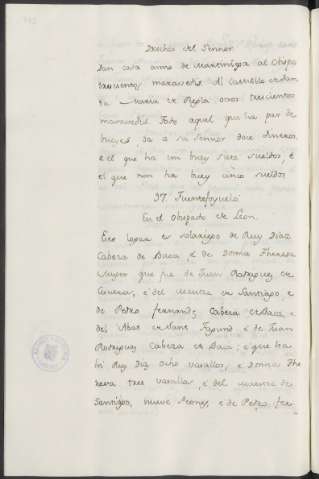 Derechos del Sennor
Dan cada anno de martiniega al Obispo
trescientos maravedis. Al Castillo de
Maria de Regla otros trescientos
maravedis. Todo aquel que ha par de
bueyes, da a su Sennor doce dineros,
e el que ha un buey siete sueldos, e
el que non ha buey cinco sueldos.
37. Fuentefoyuelo.
En el obispado de Leon.
Este logar es solariego de Ruy Diaz
Cabeza de Baca, e de Donna Theresa
Muger que fue de Juan Rodriguez de
Cisneros, e del de Santiago, e
de Pedro Fernandez Cabeza de Baca, e
del Abat de Sant Fagund, e de Juan
Rodriguez Cabeza de Baca: e que ha
hi Ruy Diaz ocho vasallos, e Donna The
resa tres vasallos, e del de
Santiago, nueve, e de Pedro Fer-